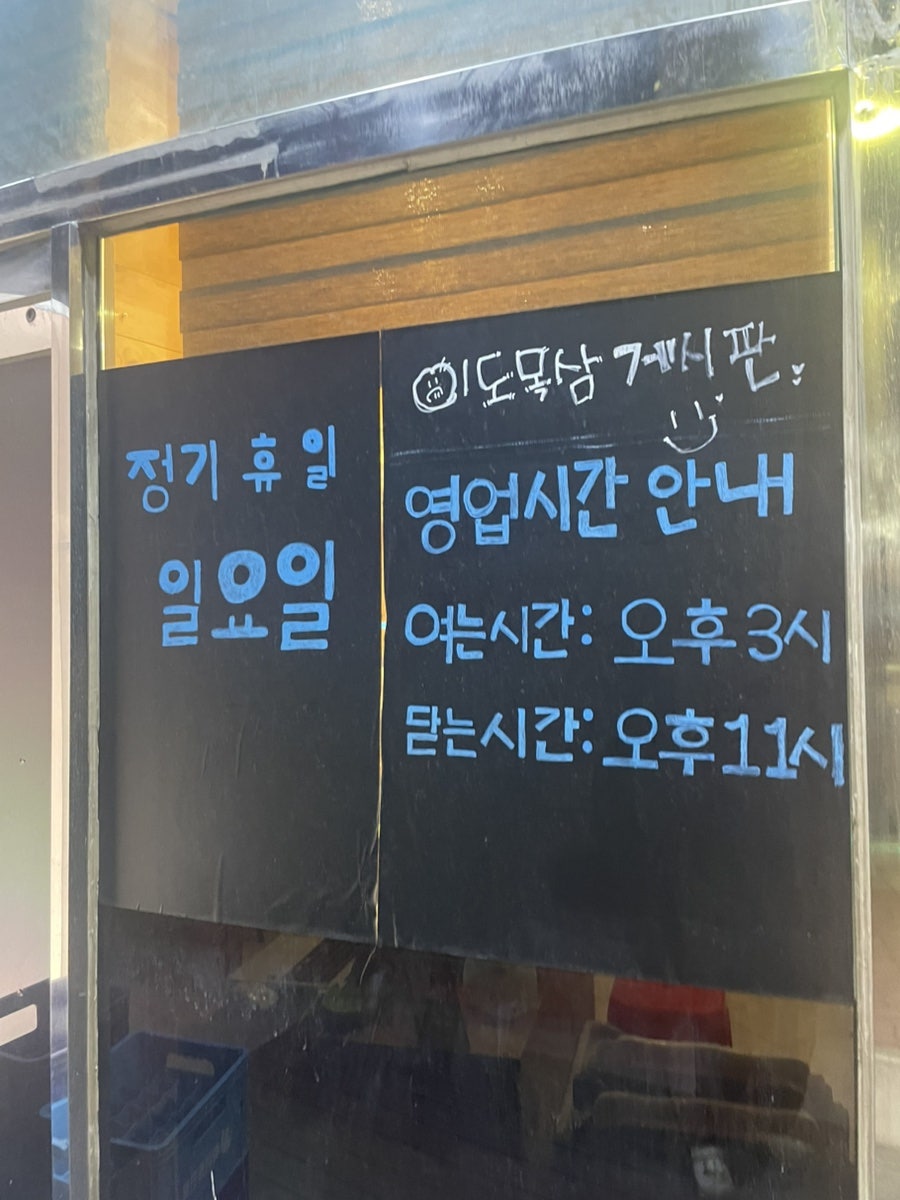 정기 휴일
일요일
이도목삼 게시판
영업시간 안내
여는시간: 오후 3시
닫는시간: 오후 11시